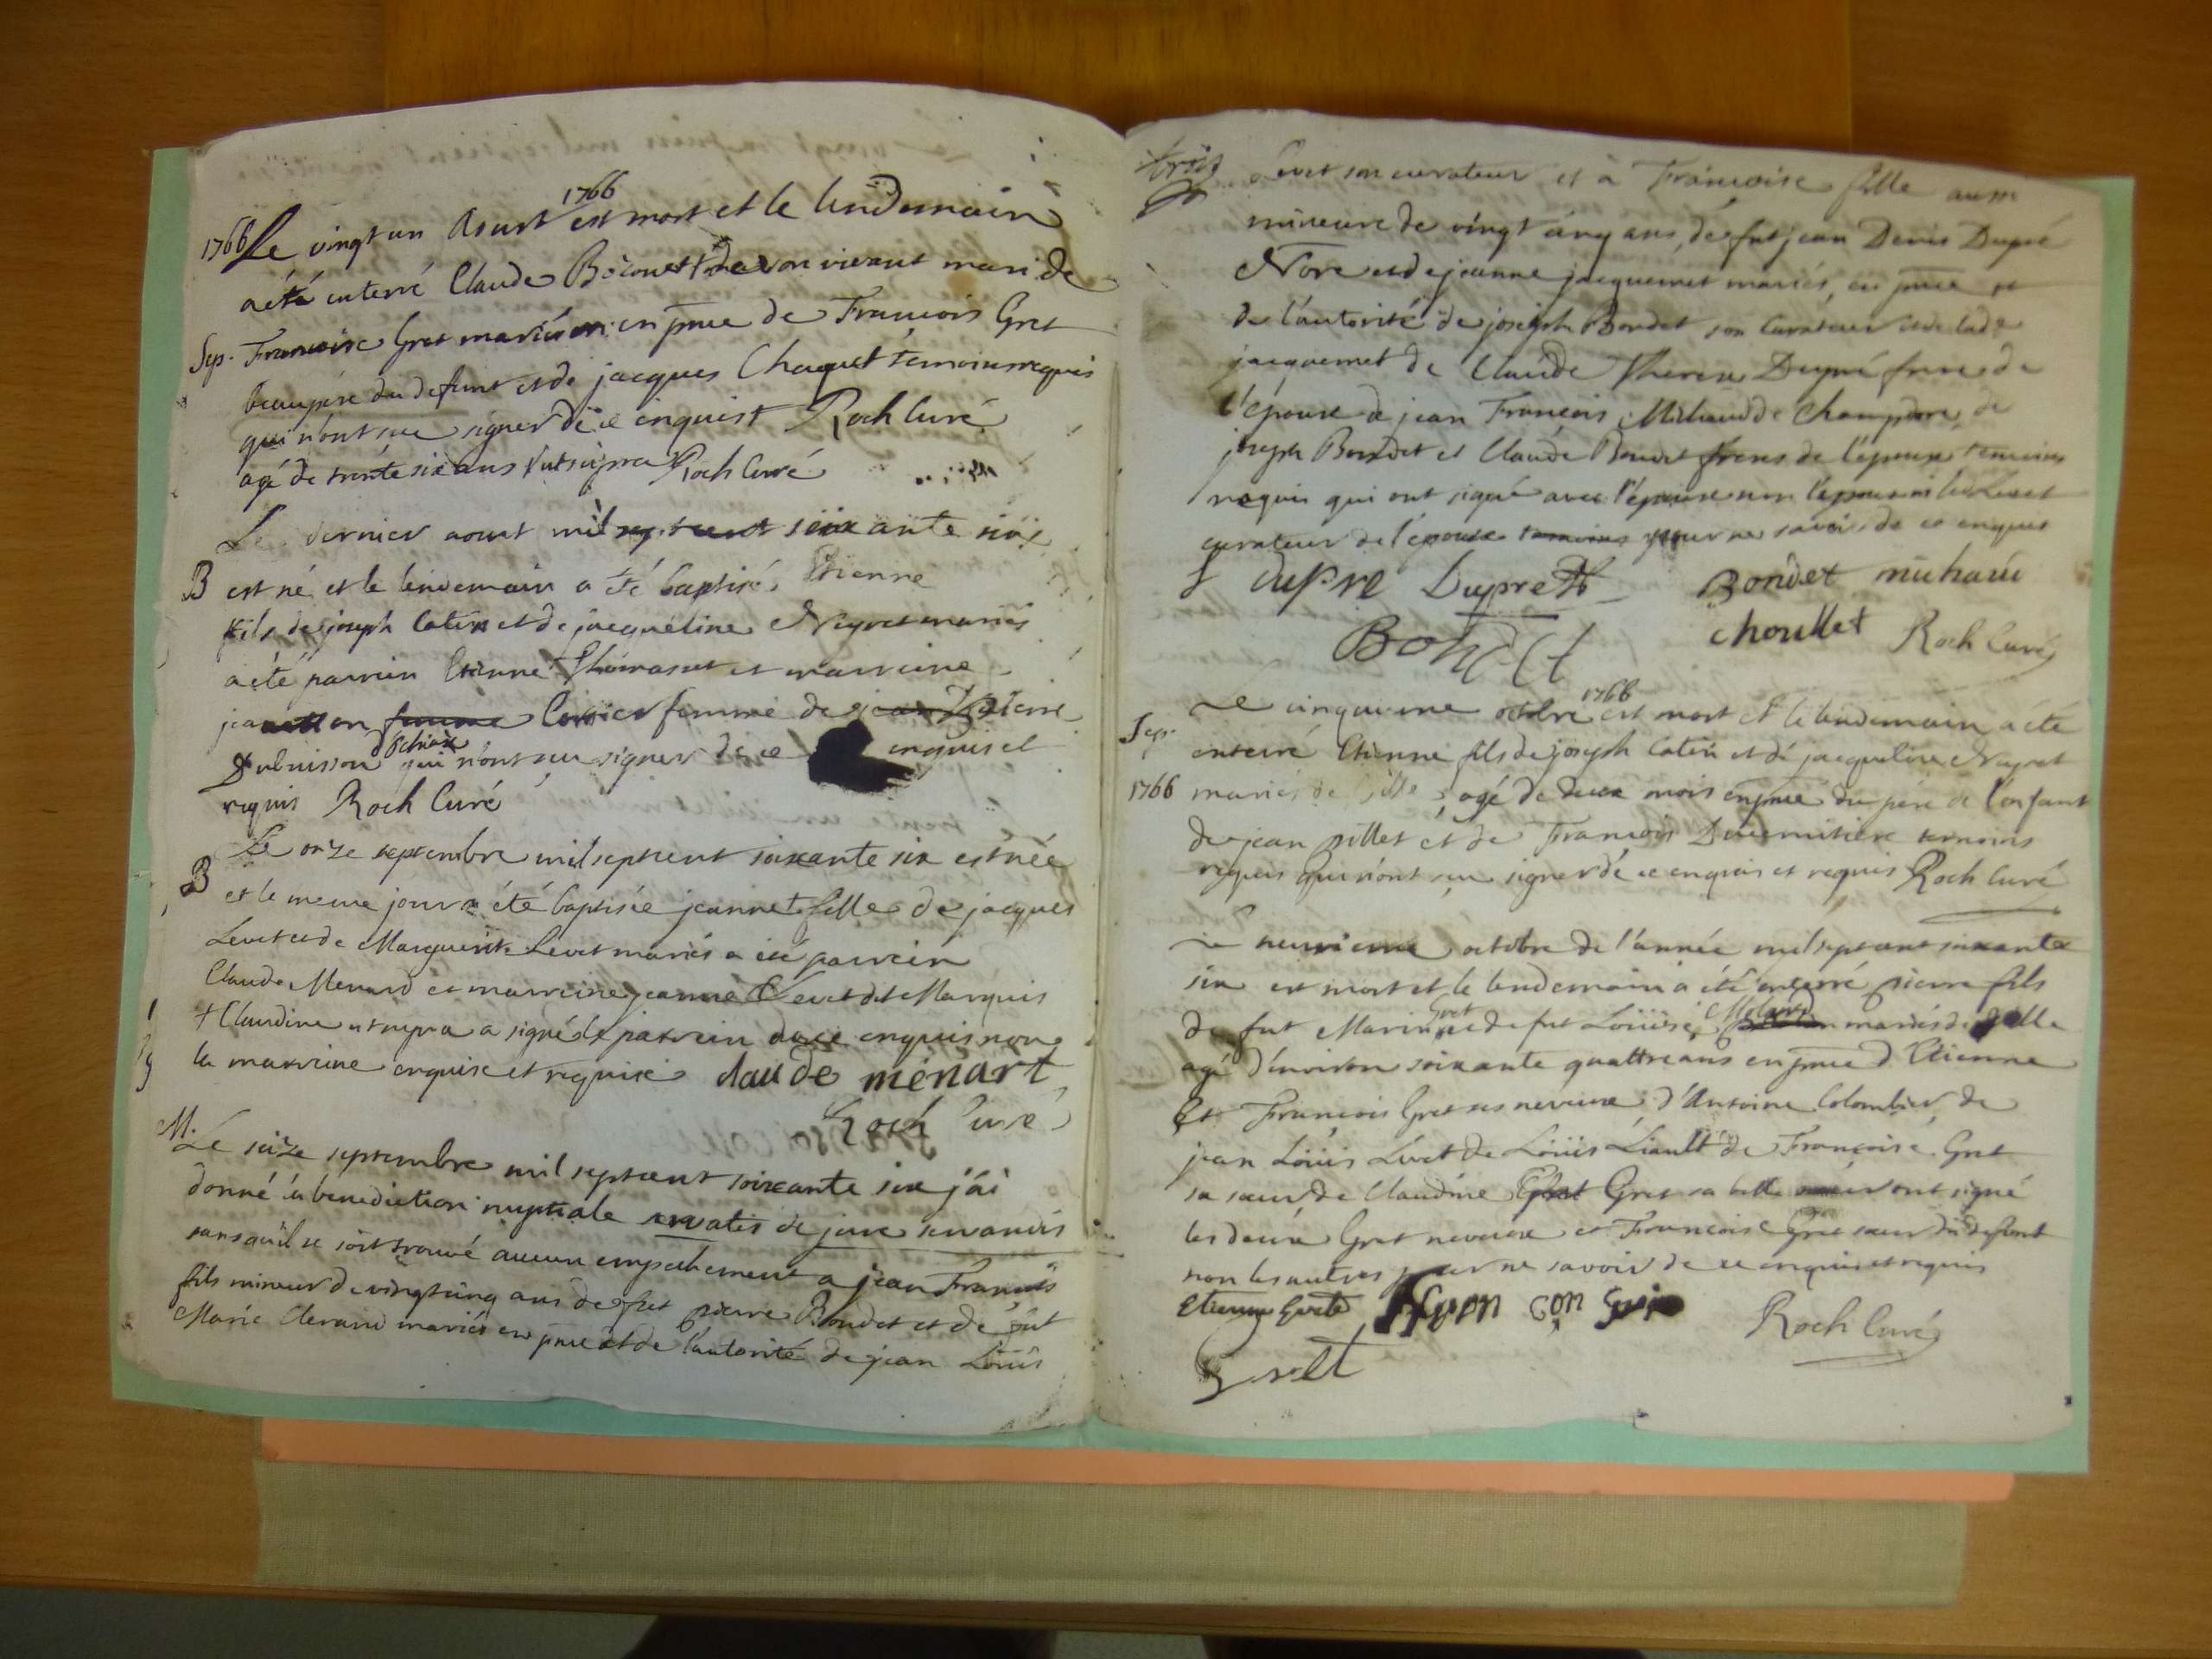 1766
1766 Le vingt un Aoust est mort et le lendemain
a été enterré Claude de son vivant mari de
Sep. Francoise Gret mariés en pnce de Francois Gret
beaupere du defunt et de jacques Chaquet temoins requis
qui n'ont sçu signer de ce enquist Roch Curé
agé de trente six ans ut supra Roch Curé
Le dernier aout mil sept cent soixante six
B est né et le lendemain a été baptisé Etienne
fils de joseph Catin et de jacqueline Neyret mariés
a été parrein Etienne Thomasset et marreine
femme femme de jean Pierre
Dubuisson qui n'ont sçu signer de ce enquis et
requis Roch Curé
Le onze septembre mil sept cent soixante six est née
B et le meme jour a été baptisée jeanne + fille de jacques
Levet et de Marguerite Levet mariés a été parrein
Claude Menard et marreine jeanne Levet dit Marquis
+ Claudine ut supra a signé le parrein de ce enquis non
la marreine enquise et requise claude menart
Roch Curé
M. Le seize septembre mil sept cent soixante six j'ai
donné la benediction nuptiale servatis de jure servandis
sans qu'il se soit trouvé aucun empechement a jean Francois
fils mineur de vingt cinq ans de fut pierre Bondet et de fut
Marie Clerand mariés en pnce et de l'autorité de jean Loüis
Levet son curateur et à Francoise fille aussi
mineure de vingt cinq ans de fut jean Denis Dupré
Nore et de jeanne jacquemet mariés, en pnce et
de l'autorité de joseph Bondet son Curateur et de lade
jacquemet de Claude Dupré frere de
l'epouse de jean François Michaud de Champdore de
joseph Bondet et Claude Bondet freres de l'epoux temoins
requis qui ont signé avec l'epouse non l'epoux ni led Levet
curateur de l'epoux temoins pour ne savoir de ce enquis
f dupre Dupre Bondet michaud
Bondet choullet Roch Curé
1766
Le cinquieme octobre est mort et le lendemain a été
Sep. enterré Etienne fils de joseph Catin et de jacqueline Neyret
1766 mariés de agé de deux mois en pnce du pere de l'enfant
de jean pillet et de Francois temoins
requis qui n'ont sçu signer de ce enquis et requis Roch Curé
Le neuvieme octobre de l'année mil sept cent soixante
six est mort et le lendemain a été enterré pierre fils
de fut Marin Gret et de fut Loüise mariés de
agé d'environ soixante quattre ans en pnce d'Etienne
Et François Gret ses neveux d'Antoine Colombier de
jean Loüis Livet de Loüis Liault de Françoise Gret
sa sœur, de Claudine Gret Gret sa belle sœur ont signé
les deux Gret neveux et Francoise Gret sœur du defunt
non les autres pour ne savoir de ce enquis et requis
Etienne Grete
Roch Curé
Gret